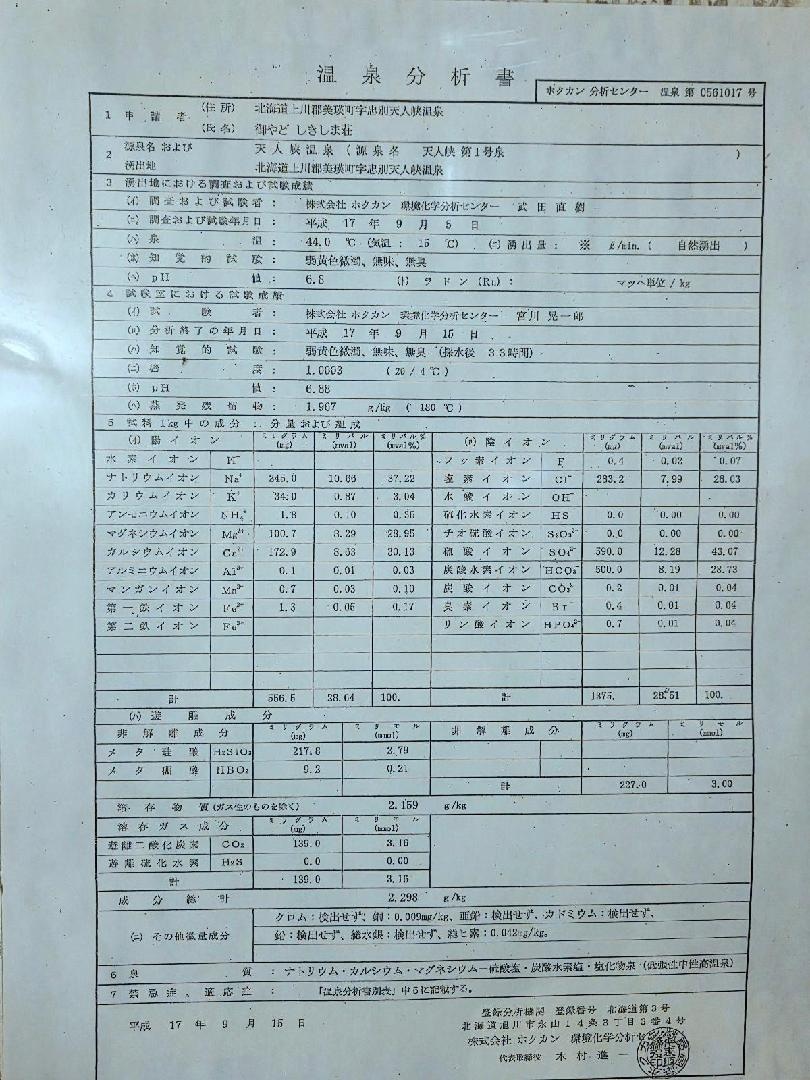 温泉分析書
ホクカン 分析センター 温泉 第 0561017 号
1 申請者 (住所) 北海道上川郡美瑛町字忠別天人峡温泉
(氏名) 御やど しきしま荘
2 源泉名および湧出地 天人峡温泉 (源泉名 天人峡 第1号泉 )
北海道上川郡美瑛町字忠別天人峡温泉
3 湧出地における調査および試験成績
(イ) 調査および試験者: 株式会社 ホクカン 環境化学分析センター 武田直樹
(ロ) 調査および試験年月日: 平成 17 年 9 月 5 日
(ハ) 泉温: 44.0 ℃ (気温: 15 ℃) (ニ) 湧出量: ※ ℓ/min. ( 自然湧出 )
(ホ) 知覚的試験: 弱黄色微濁、無味、無臭
(ヘ) pH値: 6.8 (ト) ラドン(Rn): マッヘ単位/kg
4 試験室における試験成績
(イ) 試験者: 株式会社 ホクカン 環境化学分析センター 宮川 晃一郎
(ロ) 分析終了の年月日: 平成 17 年 9 月 15 日
(ハ) 知覚的試験: 弱黄色微濁、無味、無臭 (採水後 33時間)
(ニ) 密度: 1.0003 (20/4℃)
(ホ) pH値: 6.88
(ヘ) 蒸発残留物: 1.967 g/kg ( 180 ℃)
5 試料1kg中の成分:、分量および組成
(イ) 陽イオン ミリグラム(mg) ミリバル(mval) ミリバル%(mval%) (ロ) 陰イオン ミリグラム(mg) ミリバル(mval) ミリバル%(mval%)
水素イオン H⁺ フッ素イオン F⁻ 0.4 0.02 0.07
ナトリウムイオン Na⁺ 245.0 10.66 37.22 塩素イオン Cl⁻ 283.2 7.99 28.03
カリウムイオン K⁺ 34.0 0.87 3.04 水酸イオン OH⁻
アンモニウムイオン NH₄⁺ 1.8 0.10 0.35 硫化水素イオン HS⁻ 0.0 0.00 0.00
マグネシウムイオン Mg²⁺ 100.7 8.29 28.95 チオ硫酸イオン S₂O₃²⁻ 0.0 0.00 0.00
カルシウムイオン Ca²⁺ 172.9 8.63 30.13 硫酸イオン SO₄²⁻ 590.0 12.28 43.07
アルミニウムイオン Al³⁺ 0.1 0.01 0.03 炭酸水素イオン HCO₃⁻ 500.0 8.19 28.73
マンガンイオン Mn²⁺ 0.7 0.03 0.10 炭酸イオン CO₃²⁻ 0.2 0.01 0.04
第一鉄イオン Fe²⁺ 1.3 0.05 0.17 臭素イオン Br⁻ 0.4 0.01 0.04
第二鉄イオン Fe³⁺ リン酸イオン HPO₄²⁻ 0.7 0.01 0.04
計 556.5 28.64 100. 計 1375. 28.51 100.
(ハ) 遊離成分
非解離成分 ミリグラム(mg) ミリモル(mmol) 非解離成分 ミリグラム(mg) ミリモル(mmol)
メタ珪酸 H₂SiO₃ 217.8 2.79
メタ硼酸 HBO₂ 9.2 0.21
計 227.0 3.00
溶存物質(ガス性のものを除く) 2.159 g/kg
溶存ガス成分 ミリグラム(mg) ミリモル(mmol)
遊離二酸化炭素 CO₂ 139.0 3.16
遊離硫化水素 H₂S 0.0 0.00
計 139.0 3.16
成分総計 2.298 g/kg
(ニ) その他微量成分 クロム:検出せず、銅:0.009mg/kg、亜鉛:検出せず、カドミウム:検出せず、
鉛:検出せず、総水銀:検出せず、総ヒ素:0.042mg/kg。
6 泉質: ナトリウム・カルシウム・マグネシウムー硫酸塩・炭酸水素塩・塩化物泉 (低張性中性高温泉)
7 禁忌症、適応症: 「温泉分析書別表」中5に記載する。
平成 17 年 9 月 15 日
登録分析機関 登録番号 北海道第3号
北海道旭川市永山14条3丁目3番4号
株式会社 ホクカン 環境化学分析セ
代表取締役 木村 進一